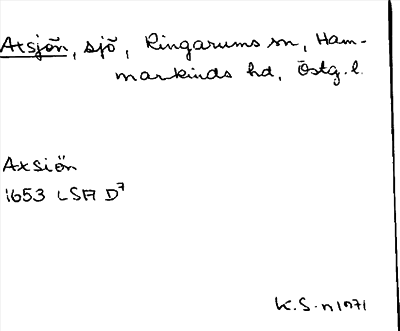 Axsjön, sjö, Ringarums sn, Ham-
markinds hd, Östg. l.
Axsiön
1653 LSA D7
K.S-n 1971